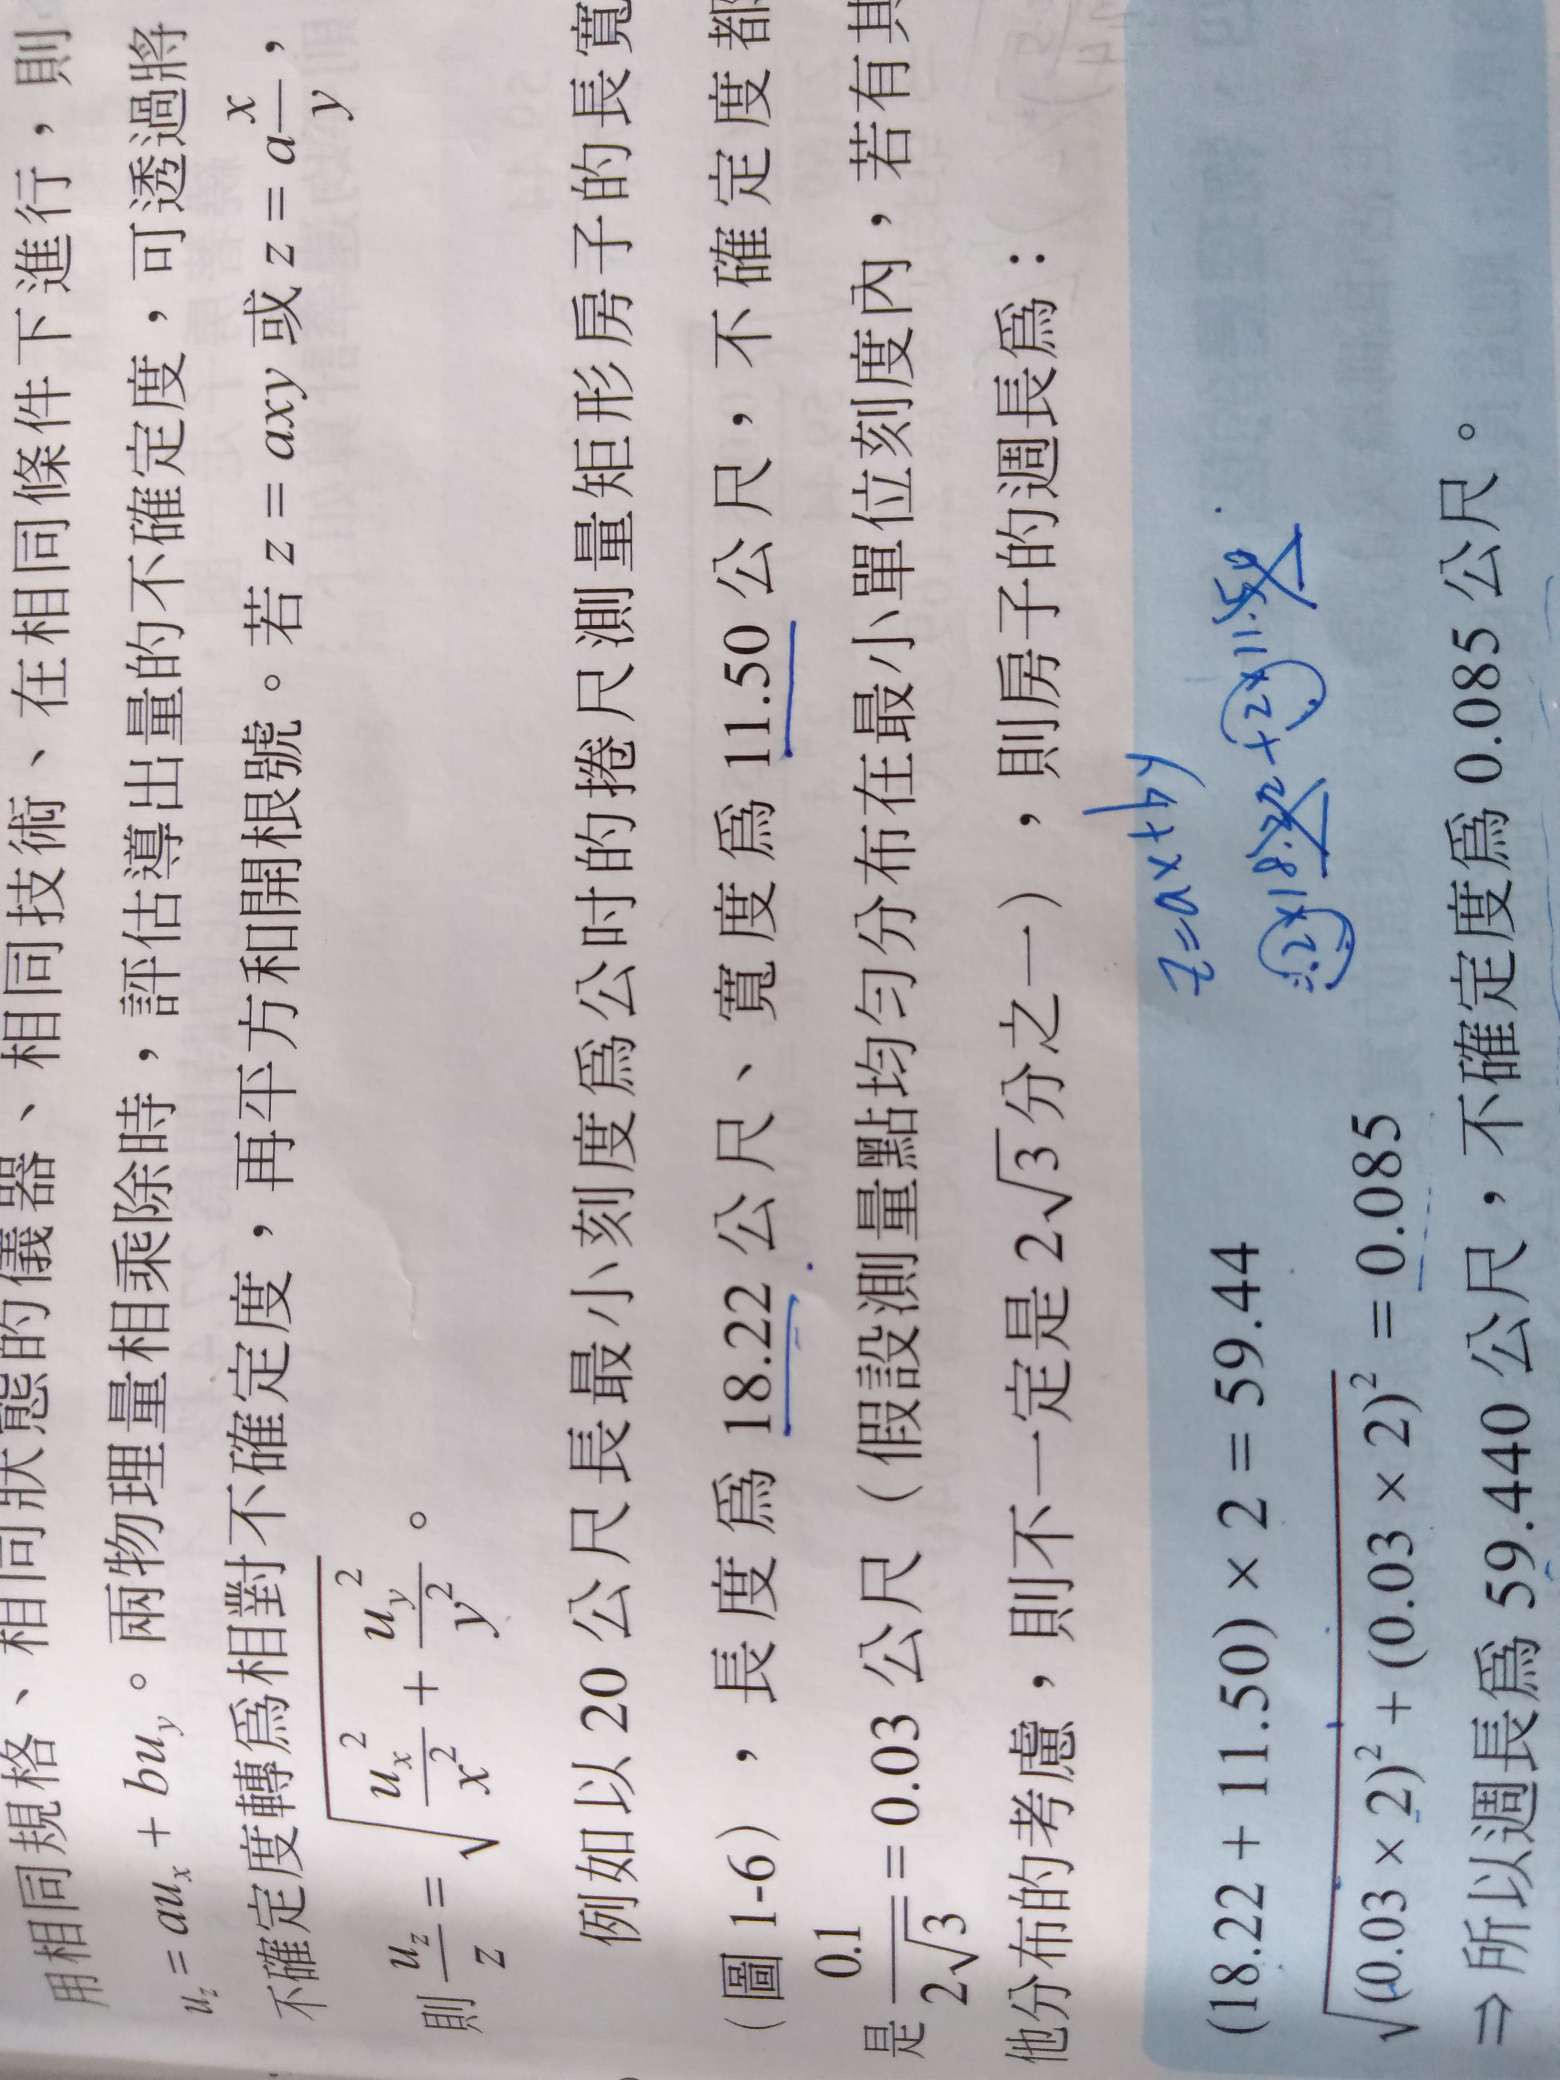 用相同規格、相同狀態的儀器、相同技術、在相同條件下進行，則
u_z = au_x + bu_y。兩物理量相乘除時，評估導出量的不確定度，可透過將
不確定度轉為相對不確定度，再平方和開根號。若 z = axy 或 z = a x/y，
則 u_z/z = √(u_x²/x² + u_y²/y²)。
例如以 20 公尺長最小刻度為公吋的捲尺測量矩形房子的長寬
（圖 1-6），長度為 18.22 公尺、寬度為 11.50 公尺，不確定度都
是 0.1/2√3 = 0.03 公尺（假設測量點均勻分布在最小單位刻度內，若有其
他分布的考慮，則不一定是 2√3 分之一），則房子的週長為：
z=ax+by
(18.22 + 11.50) × 2 = 59.44
2×18.22+2×11.50
√(0.03 × 2)² + (0.03 × 2)² = 0.085
⇒ 所以週長為 59.440 公尺，不確定度為 0.085 公尺。